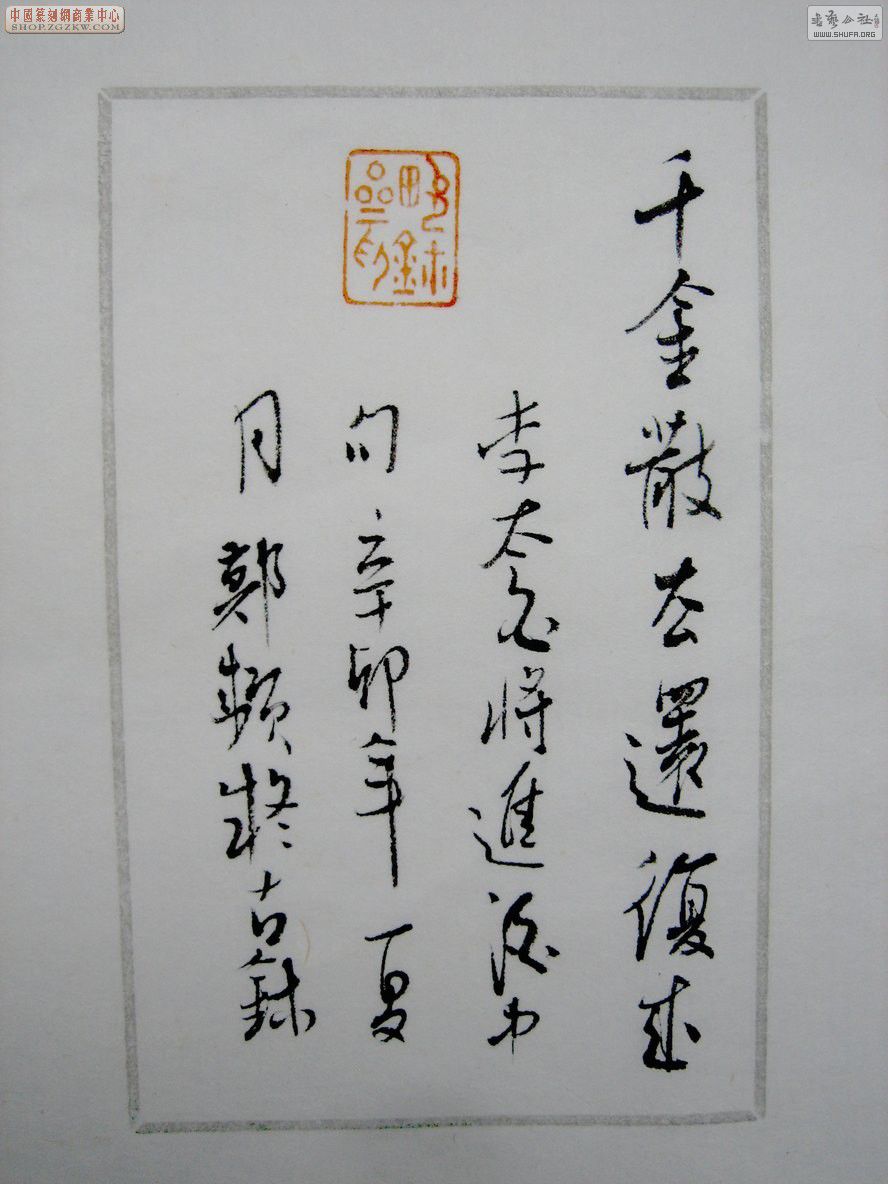 中國篆刻網商業中心
SHOP.ZGZKW.COM
書藝公社
WWW.SHUFA.ORG
千金散去還復来
李太白將進酒中
句辛卯年夏
月鄭頻擬古鉨